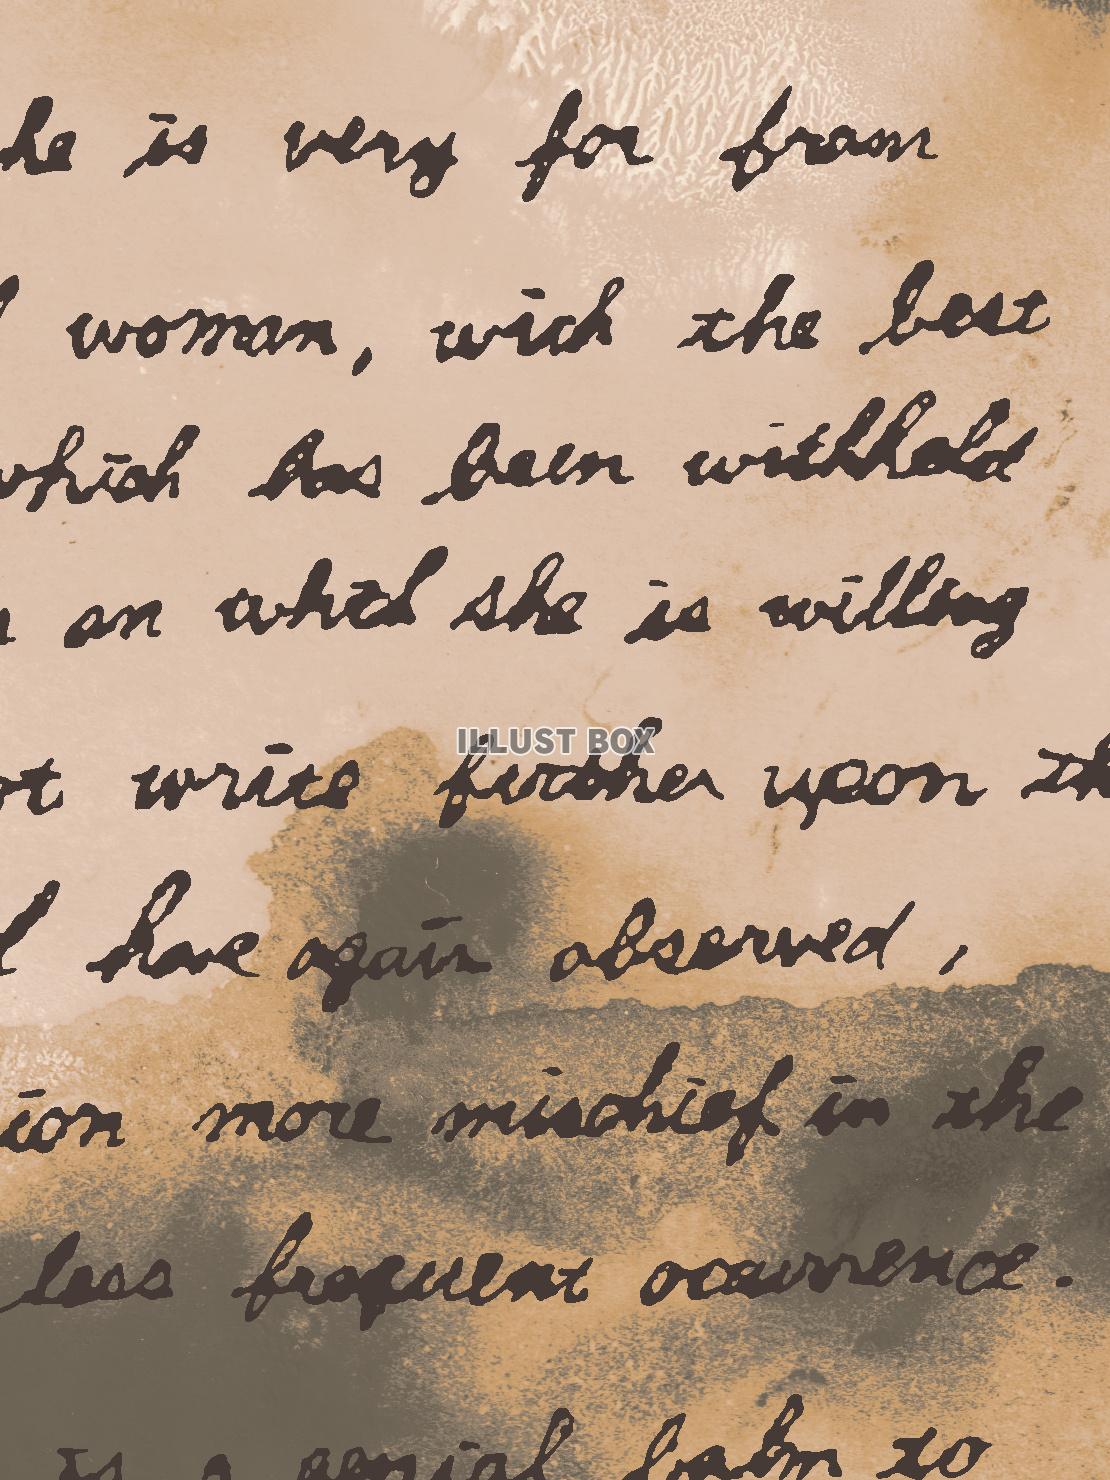 he is very for fram
woman, wich the best
which has been withheld
an which she is willing
ot write further upon th
ILLUST BOX
have again observed,
ion more mischief in the
less frequent ocurrence.
is a genial balm to